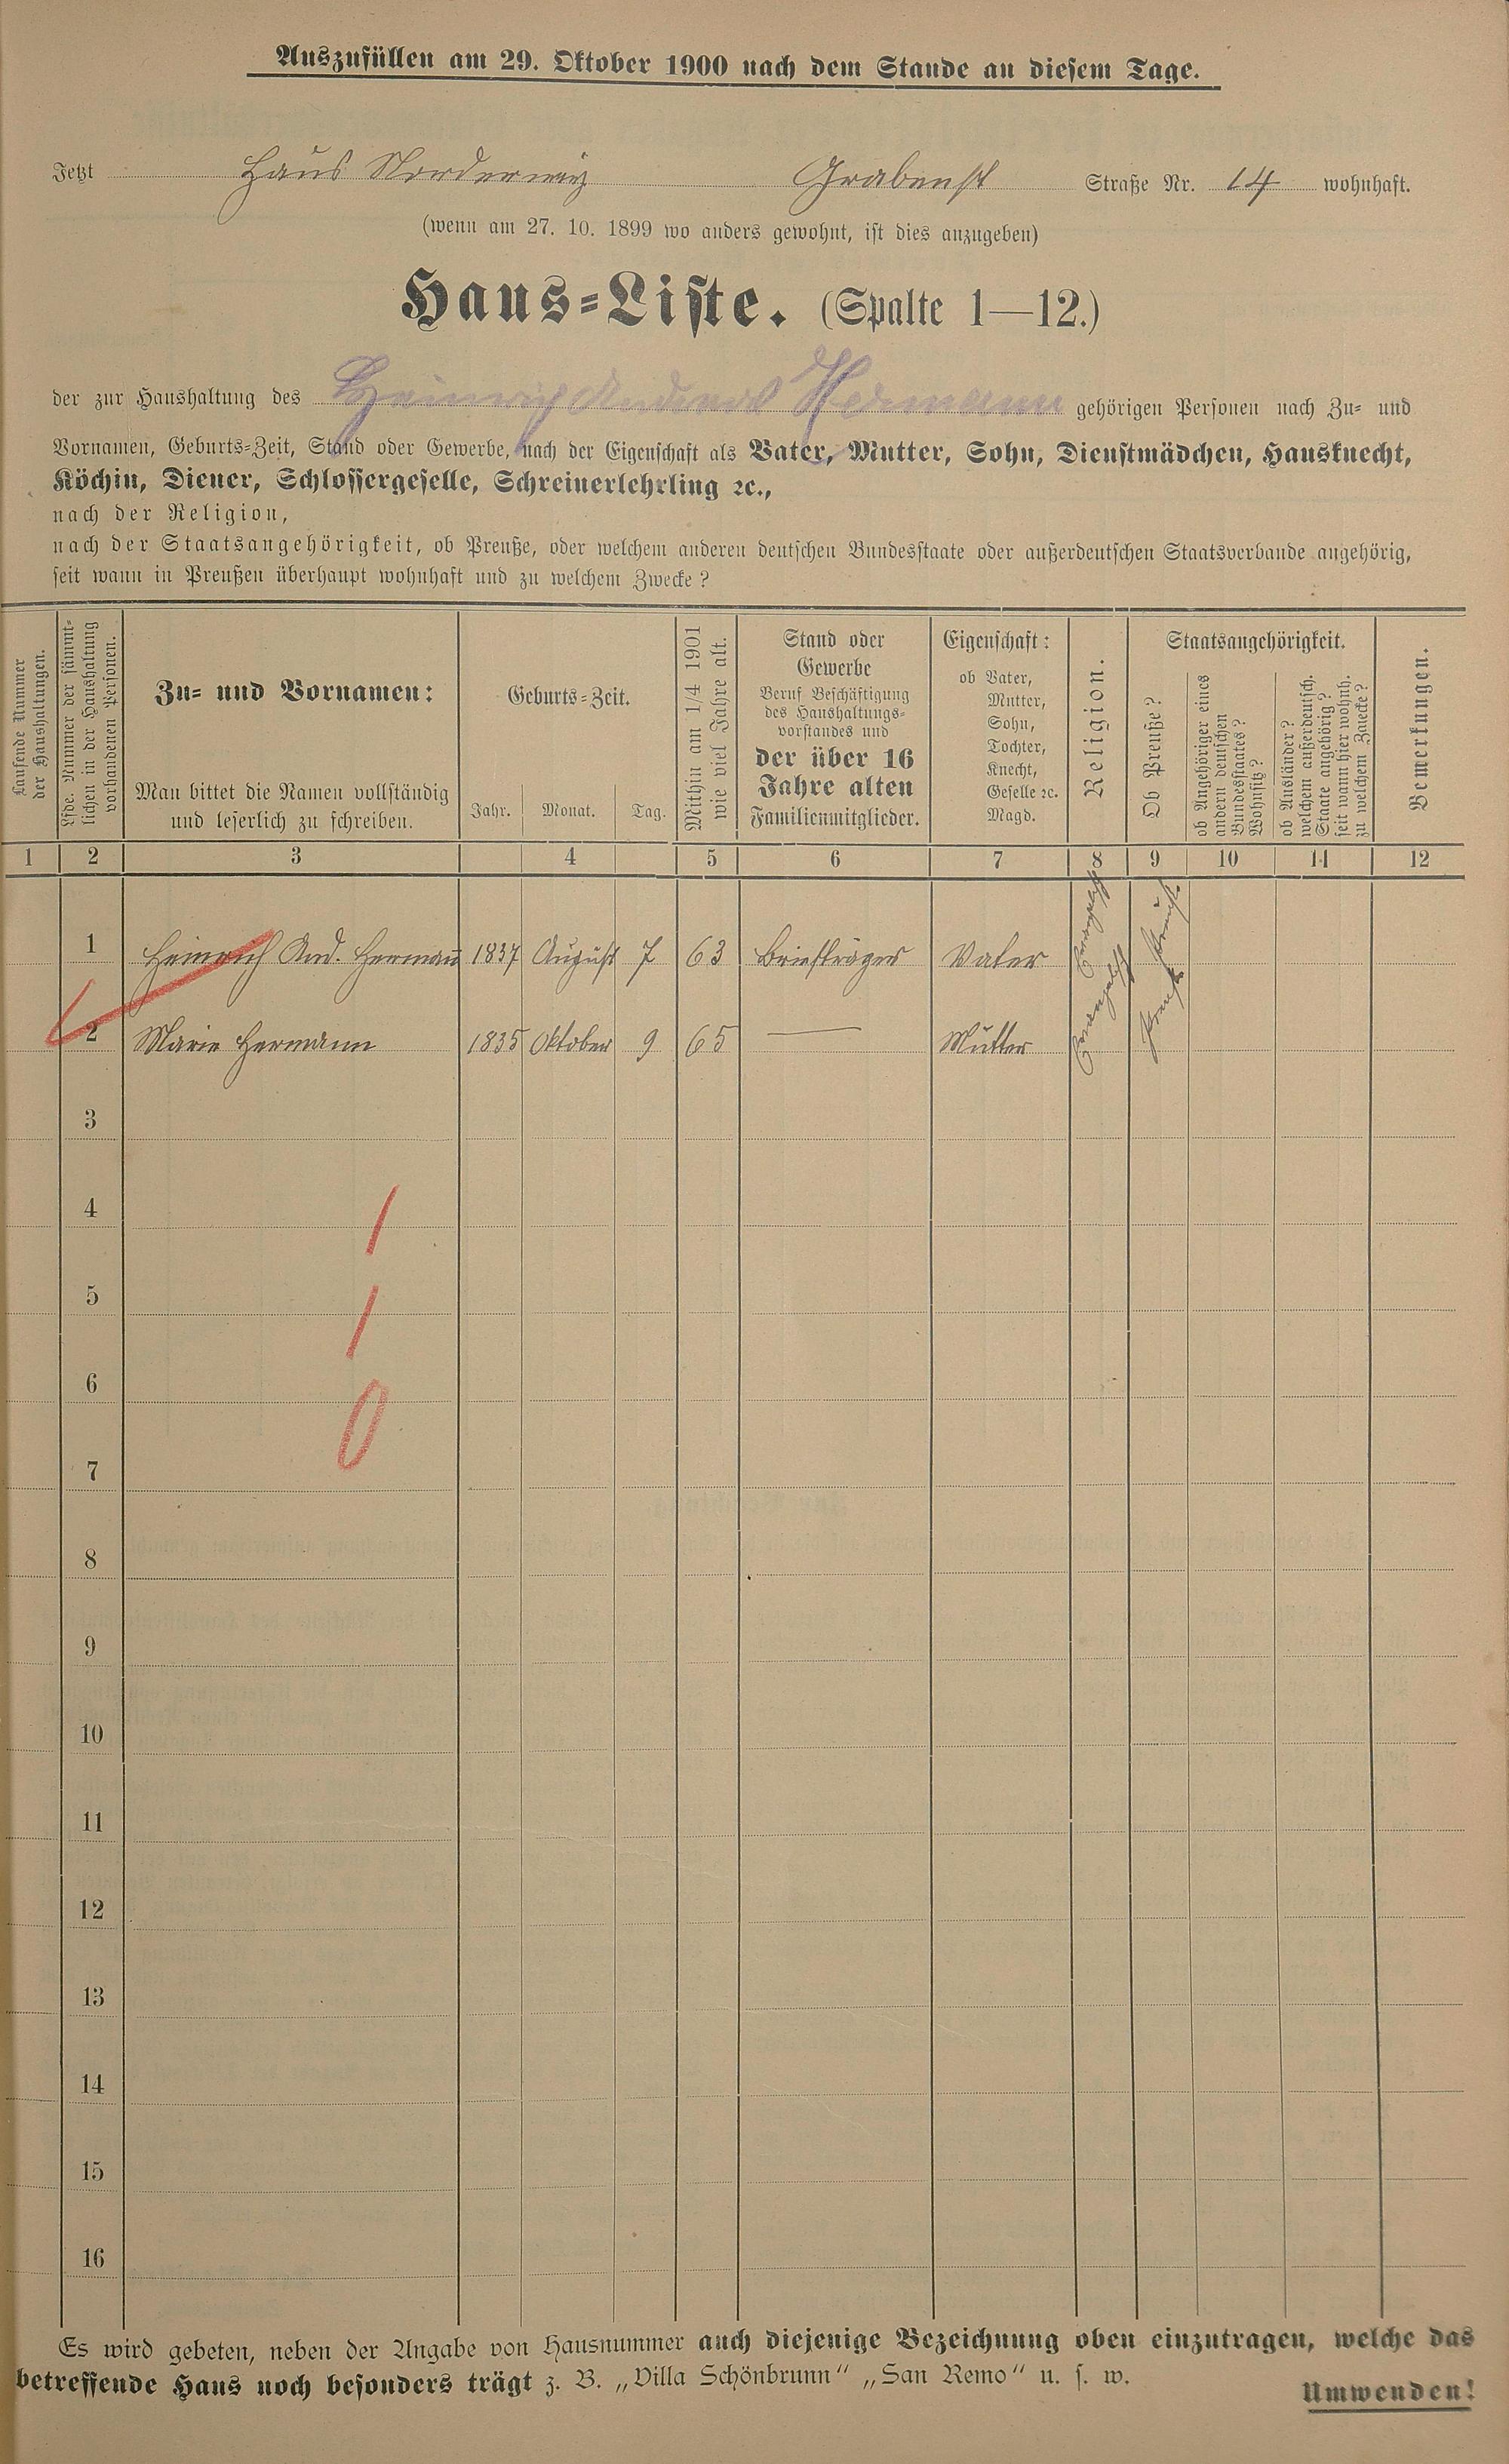 Auszufüllen am 29. Oktober 1900 nach dem Stande an diesem Tage.
Jetzt Haus Norderney Grabenst Straße Nr. 14 wohnhaft.
(wenn am 27. 10. 1899 wo anders gewohnt, ist dies anzugeben)
Haus=Liste. (Spalte 1—12.)
der zur Haushaltung des Heinrich Andreas Hermann gehörigen Personen nach Zu- und
Vornamen, Geburts=Zeit, Stand oder Gewerbe, nach der Eigenschaft als Vater, Mutter, Sohn, Dienstmädchen, Hausknecht,
Köchin, Diener, Schlossergeselle, Schreinerlehrling ꝛc.,
nach der Religion,
nach der Staatsangehörigkeit, ob Preuße, oder welchem anderen deutschen Bundesstaate oder außerdeutschen Staatsverbande angehörig,
seit wann in Preußen überhaupt wohnhaft und zu welchem Zwecke?
Laufende Nummer
der Haushaltungen.
Lfde. Nummer der sämmt-
lichen in der Haushaltung
vorhandenen Personen.
Zu= und Vornamen:
Man bittet die Namen vollständig
und leserlich zu schreiben.
Geburts=Zeit.
Jahr. Monat. Tag.
Mithin am 1/4 1901
wie viel Jahre alt.
Stand oder
Gewerbe
Beruf Beschäftigung
des Haushaltungs-
vorstandes und
der über 16
Jahre alten
Familienmitglieder.
Eigenschaft:
ob Vater,
Mutter,
Sohn,
Tochter,
Knecht,
Geselle ꝛc.
Magd.
Religion.
Staatsangehörigkeit.
Ob Preuße?
ob Angehöriger eines
andern deutschen
Bundesstaates?
Wohnsitz?
ob Ausländer?
welchem außerdeutsch.
Staate angehörig?
seit wann hier wohnh.
zu welchem Zwecke?
Bemerkungen.
1 2 3 4 5 6 7 8 9 10 11 12
1 Heinrich And. Hermann 1837 August 7 63 Briefträger Vater Evangelisch Preuße
2 Marie Hermann 1835 Oktober 9 65 — Mutter Evangelisch Preuße
3
4
1
5
1
6
0
7
8
9
10
11
12
13
14
15
16
Es wird gebeten, neben der Angabe von Hausnummer auch diejenige Bezeichnung oben einzutragen, welche das
betreffende Haus noch besonders trägt z. B. „Villa Schönbrunn“ „San Remo“ u. s. w.
Umwenden!